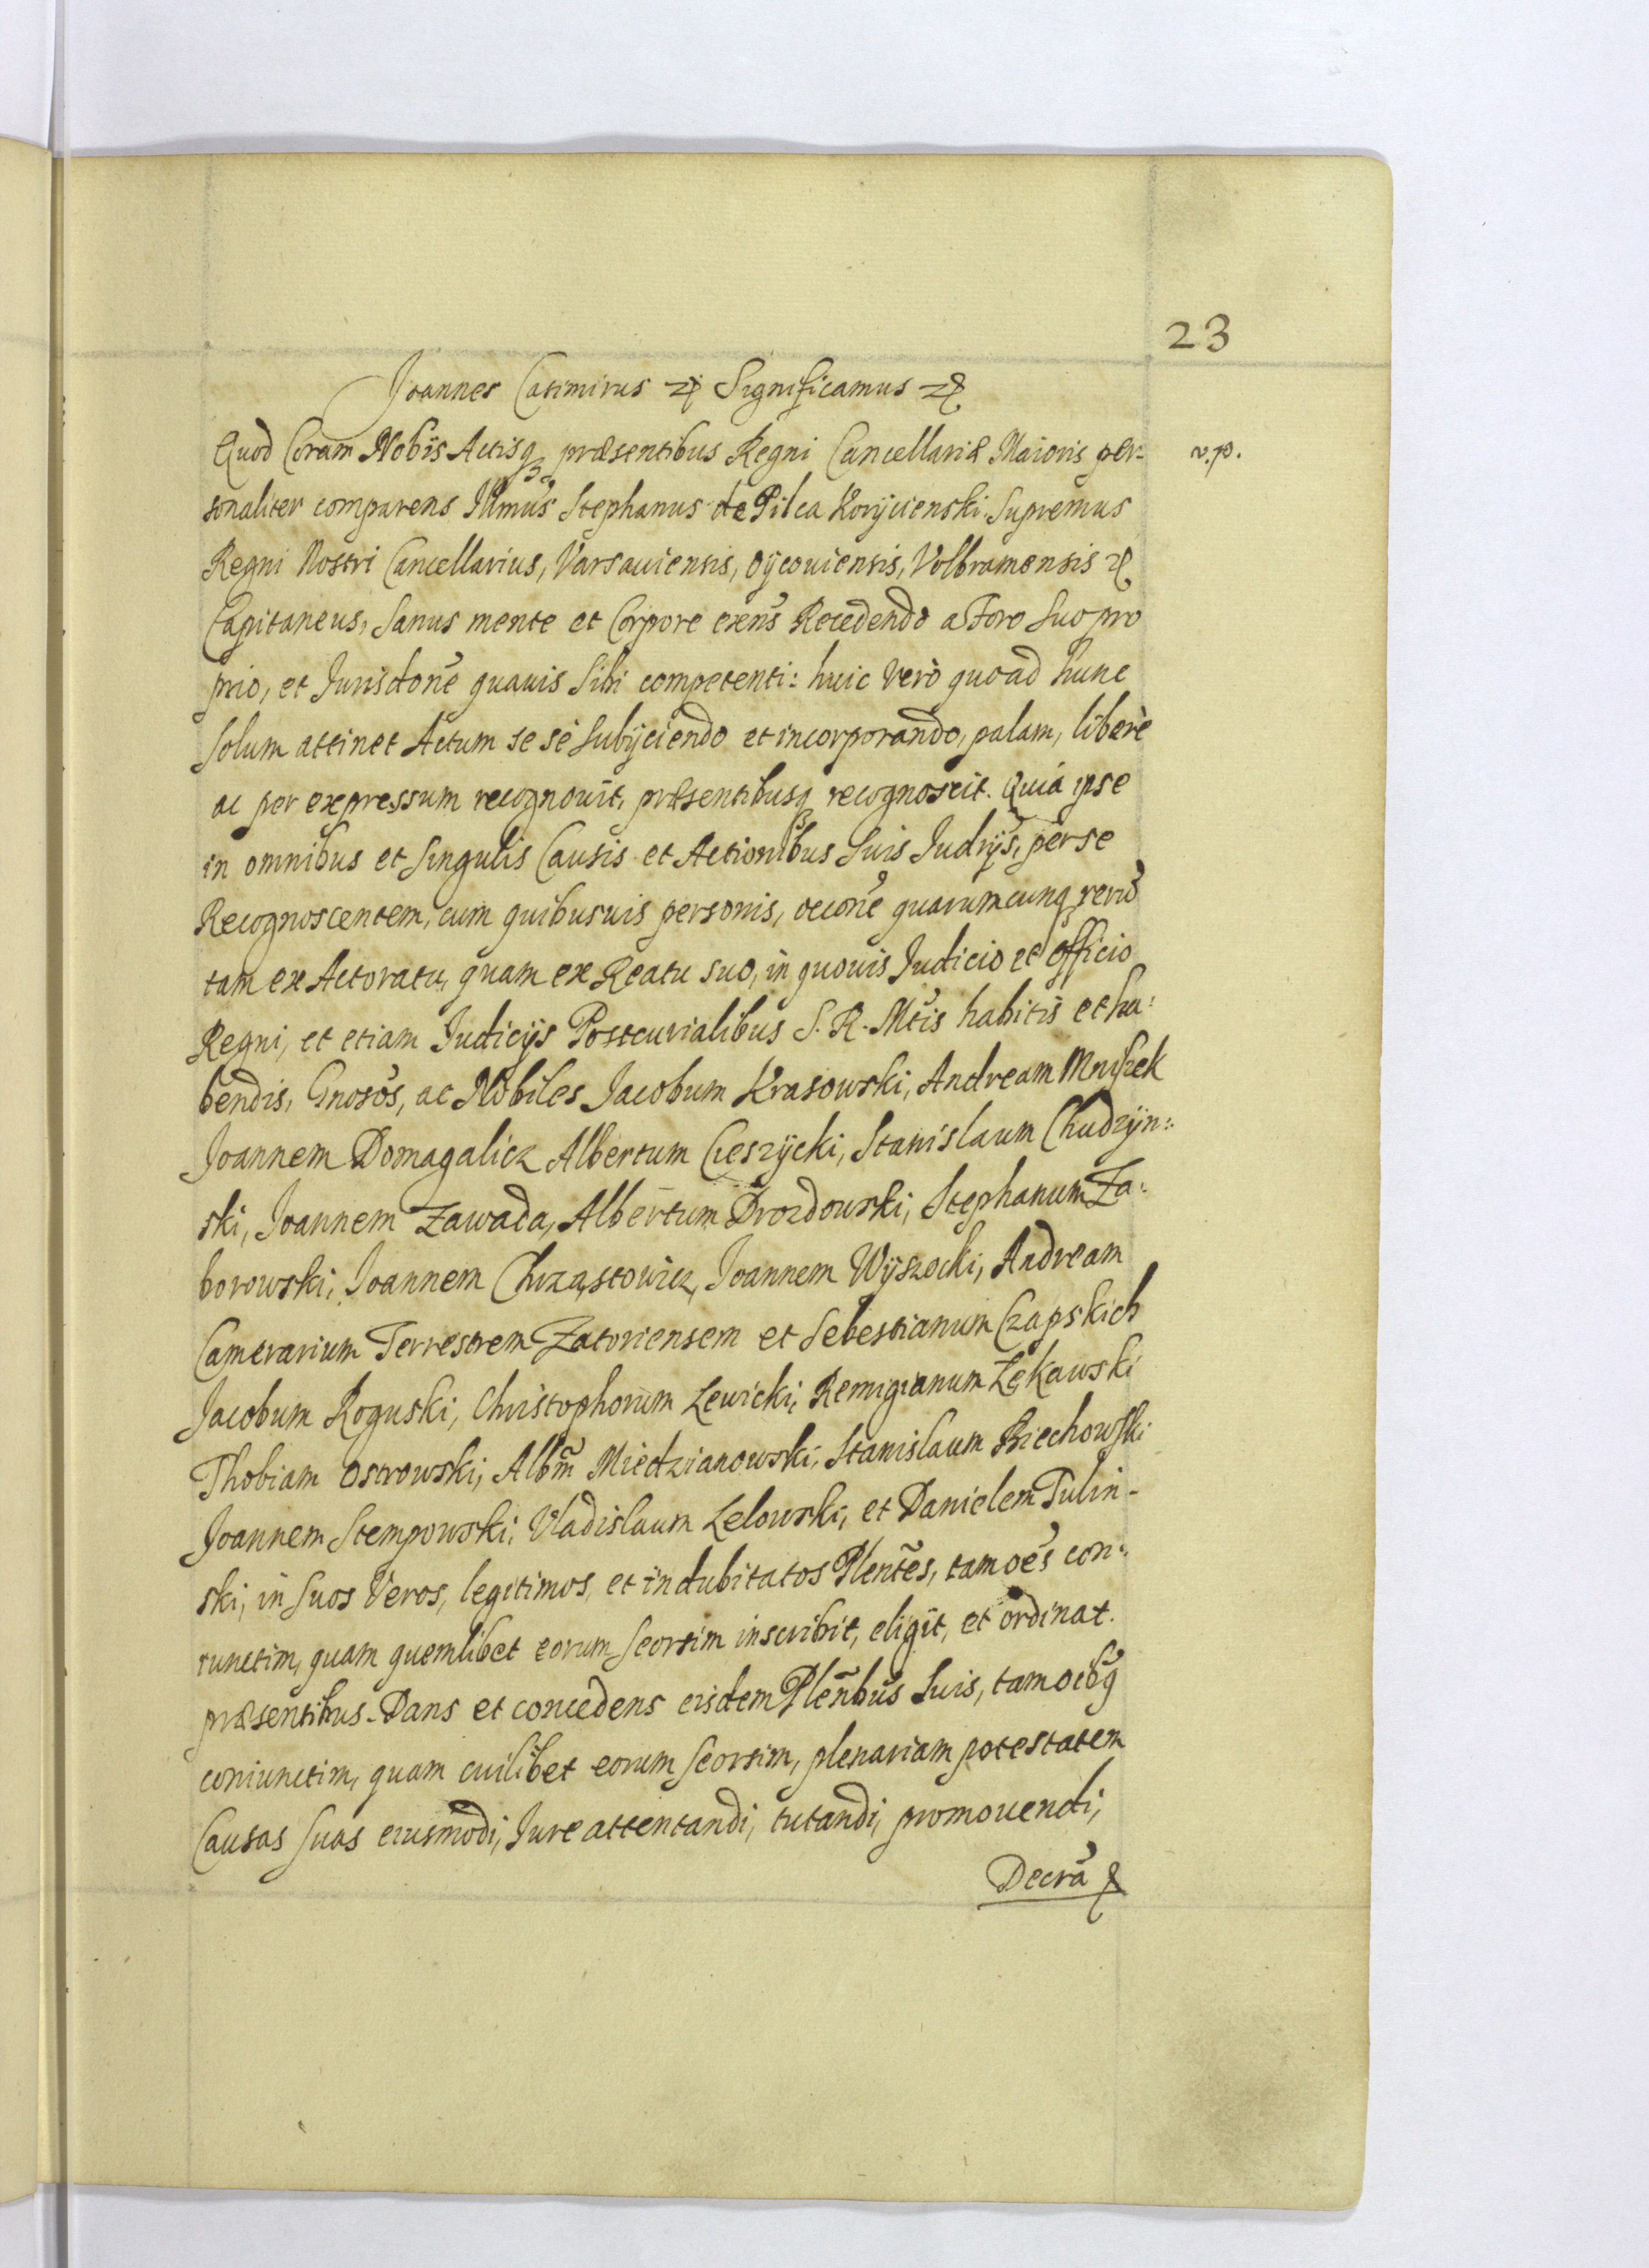 23
Joannes Casimirus etc Significamus etc
Quod Coram Nobis Actisq præsentibus Regni Cancellariæ Maioris per-
v.p.
sonaliter comparens Illmus Stephanus de Pilca Korycienski Supremus
Regni Nostri Cancellarius, Varsauiensis, Oÿcouiensis, Volbramensis etc
Capitaneus, Sanus mente et Corpore exens Recedendo a Foro Suo pro
prio, et Jurisdone quauis Sibi competenti: huic Verò quoad hunc
Solum attinet Actum se se Subÿciendo et incorporando, palam, liberè
ac per expressum recognouit, præsentibusq recognoscit. Quia ipse
in omnibus et Singulis Causis et Actionibus Suis Judrÿs, per se
Recognoscentem, cum quibusuis personis, occone quarumcunq reru
tam ex Actoratu, quam ex Reatu suo, in quouis Judicio et officio
Regni, et etiam Judicÿs Postcurialibus S. R. Mtis habitis et ha:
bendis, Gnosos, ac Nobiles Jacobum Krasowski, Andream Mniszek
Joannem Domagalicz Albertum Cieszÿcki, Stanislaum Chudzÿn:
ski, Joannem Zawada, Albertum Drozdowski, Stephanum Za:
borowski, Joannem Chrząstowicz, Joannem Wÿszocki, Andream
Camerarium Terrestrem Zatoriensem et Sebestianum Czapskich
Jacobum Roguski, Christophorum Lewicki, Remigianum Lękawski
Thobiam Ostrowski, Albm Miedzianowski, Stanislaum Biechowski
Joannem Stempowski, Vladislaum Lelowski, et Danielem Tulin-
ski, in Suos Veros, legitimos, et indubitatos Plentes, tam oes con:
iunctim, quam quemlibet eorum Seorsim inscribit, eligit, et ordinat.
præsentibus. Dans et concedens eisdem Plenbus Suis, tam oibq
coniunctim, quam cuilibet eorum Seorsim, plenariam potestatem
Causas Suas eiusmodi, Jure attentandi, tutandi, promouendi,
Decra